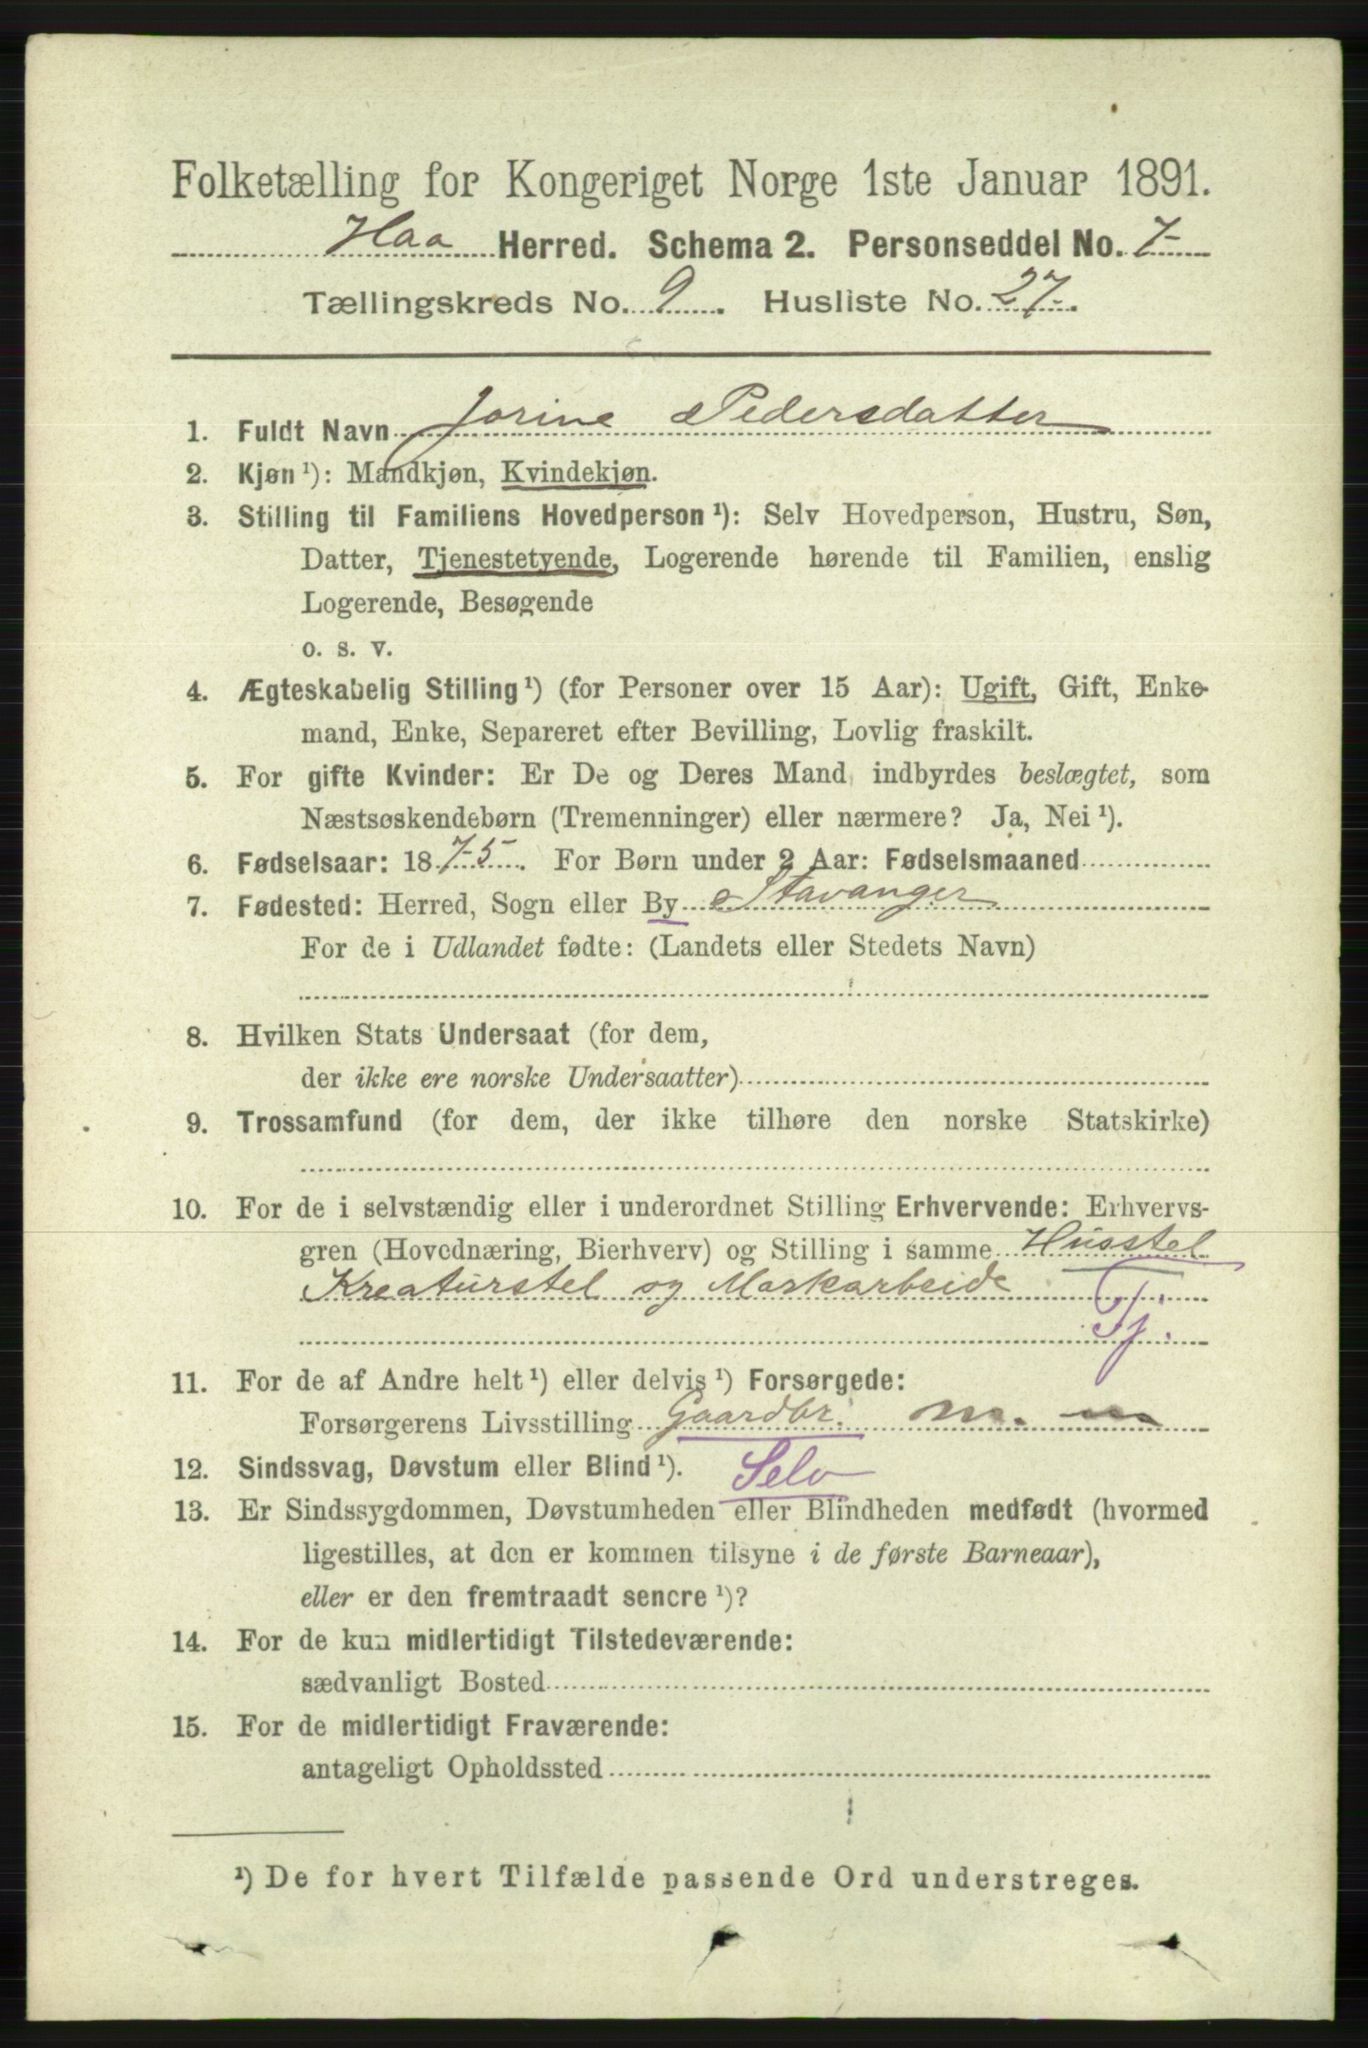 Folketælling for Kongeriget Norge 1ste Januar 1891.
Haa Herred. Schema 2. Personseddel No. 7
Tællingskreds No. 9. Husliste No. 27.
1. Fuldt Navn Jorine Pedersdatter
2. Kjøn¹): Mandkjøn, Kvindekjøn.
3. Stilling til Familiens Hovedperson¹): Selv Hovedperson, Hustru, Søn,
Datter, Tjenestetyende, Logerende hørende til Familien, enslig
Logerende, Besøgende
o. s. v.
4. Ægteskabelig Stilling¹) (for Personer over 15 Aar): Ugift, Gift, Enke-
mand, Enke, Separeret efter Bevilling, Lovlig fraskilt.
5. For gifte Kvinder: Er De og Deres Mand indbyrdes beslægtet, som
Næstsøskendebørn (Tremenninger) eller nærmere? Ja, Nei¹).
6. Fødselsaar: 1875. For Børn under 2 Aar: Fødselsmaaned
7. Fødested: Herred, Sogn eller By Stavanger
For de i Udlandet fødte: (Landets eller Stedets Navn)
8. Hvilken Stats Undersaat (for dem,
der ikke ere norske Undersaatter)
9. Trossamfund (for dem, der ikke tilhøre den norske Statskirke)
10. For de i selvstændig eller i underordnet Stilling Erhvervende: Erhvervs-
gren (Hovednæring, Bierhverv) og Stilling i samme Husstel
Kreaturstel og Markarbeide
Tj.
11. For de af Andre helt¹) eller delvis¹) Forsørgede:
Forsørgerens Livsstilling Gaardbr.
12. Sindssvag, Døvstum eller Blind¹). Selv
13. Er Sindssygdommen, Døvstumheden eller Blindheden medfødt (hvormed
ligestilles, at den er kommen tilsyne i de første Barneaar),
eller er den fremtraadt senere¹)?
14. For de kun midlertidigt Tilstedeværende:
sædvanligt Bosted
15. For de midlertidigt Fraværende:
antageligt Opholdssted
¹) De for hvert Tilfælde passende Ord understreges.